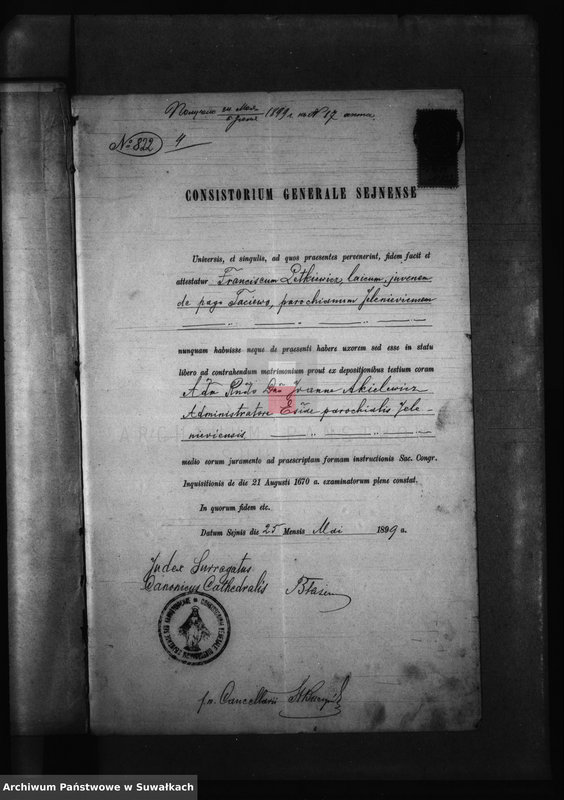 1899 г. на № 17 аннта.
№ 822 4
CONSISTORIUM GENERALE SEJNENSE
Universis, et singulis, ad quos praesentes pervenerint, fidem facit et
attestatur Franciscum Petkiewicz, laicum, juvenem
de pago Taciewo, parochianum Jelenieviensem
nunquam habuisse neque de praesenti habere uxorem sed esse in statu
libero ad contrahendum matrimonium prout ex depositionibus testium coram
Adm Rndo Dno Joanne Akielewicz
Administratore Eccliae parochialis Jele-
nieviensis
medio eorum juramento ad praescriptam formam instructionis Sac. Congr.
Inquisitionis de die 21 Augusti 1670 a. examinatorum plene constat.
In quorum fidem etc.
Datum Sejnis die 25 Mensis Mai 1899 a.
Judex Surrogatus
Canonicus Cathedralis
p.o. Cancellarii
Archiwum Państwowe w Suwałkach